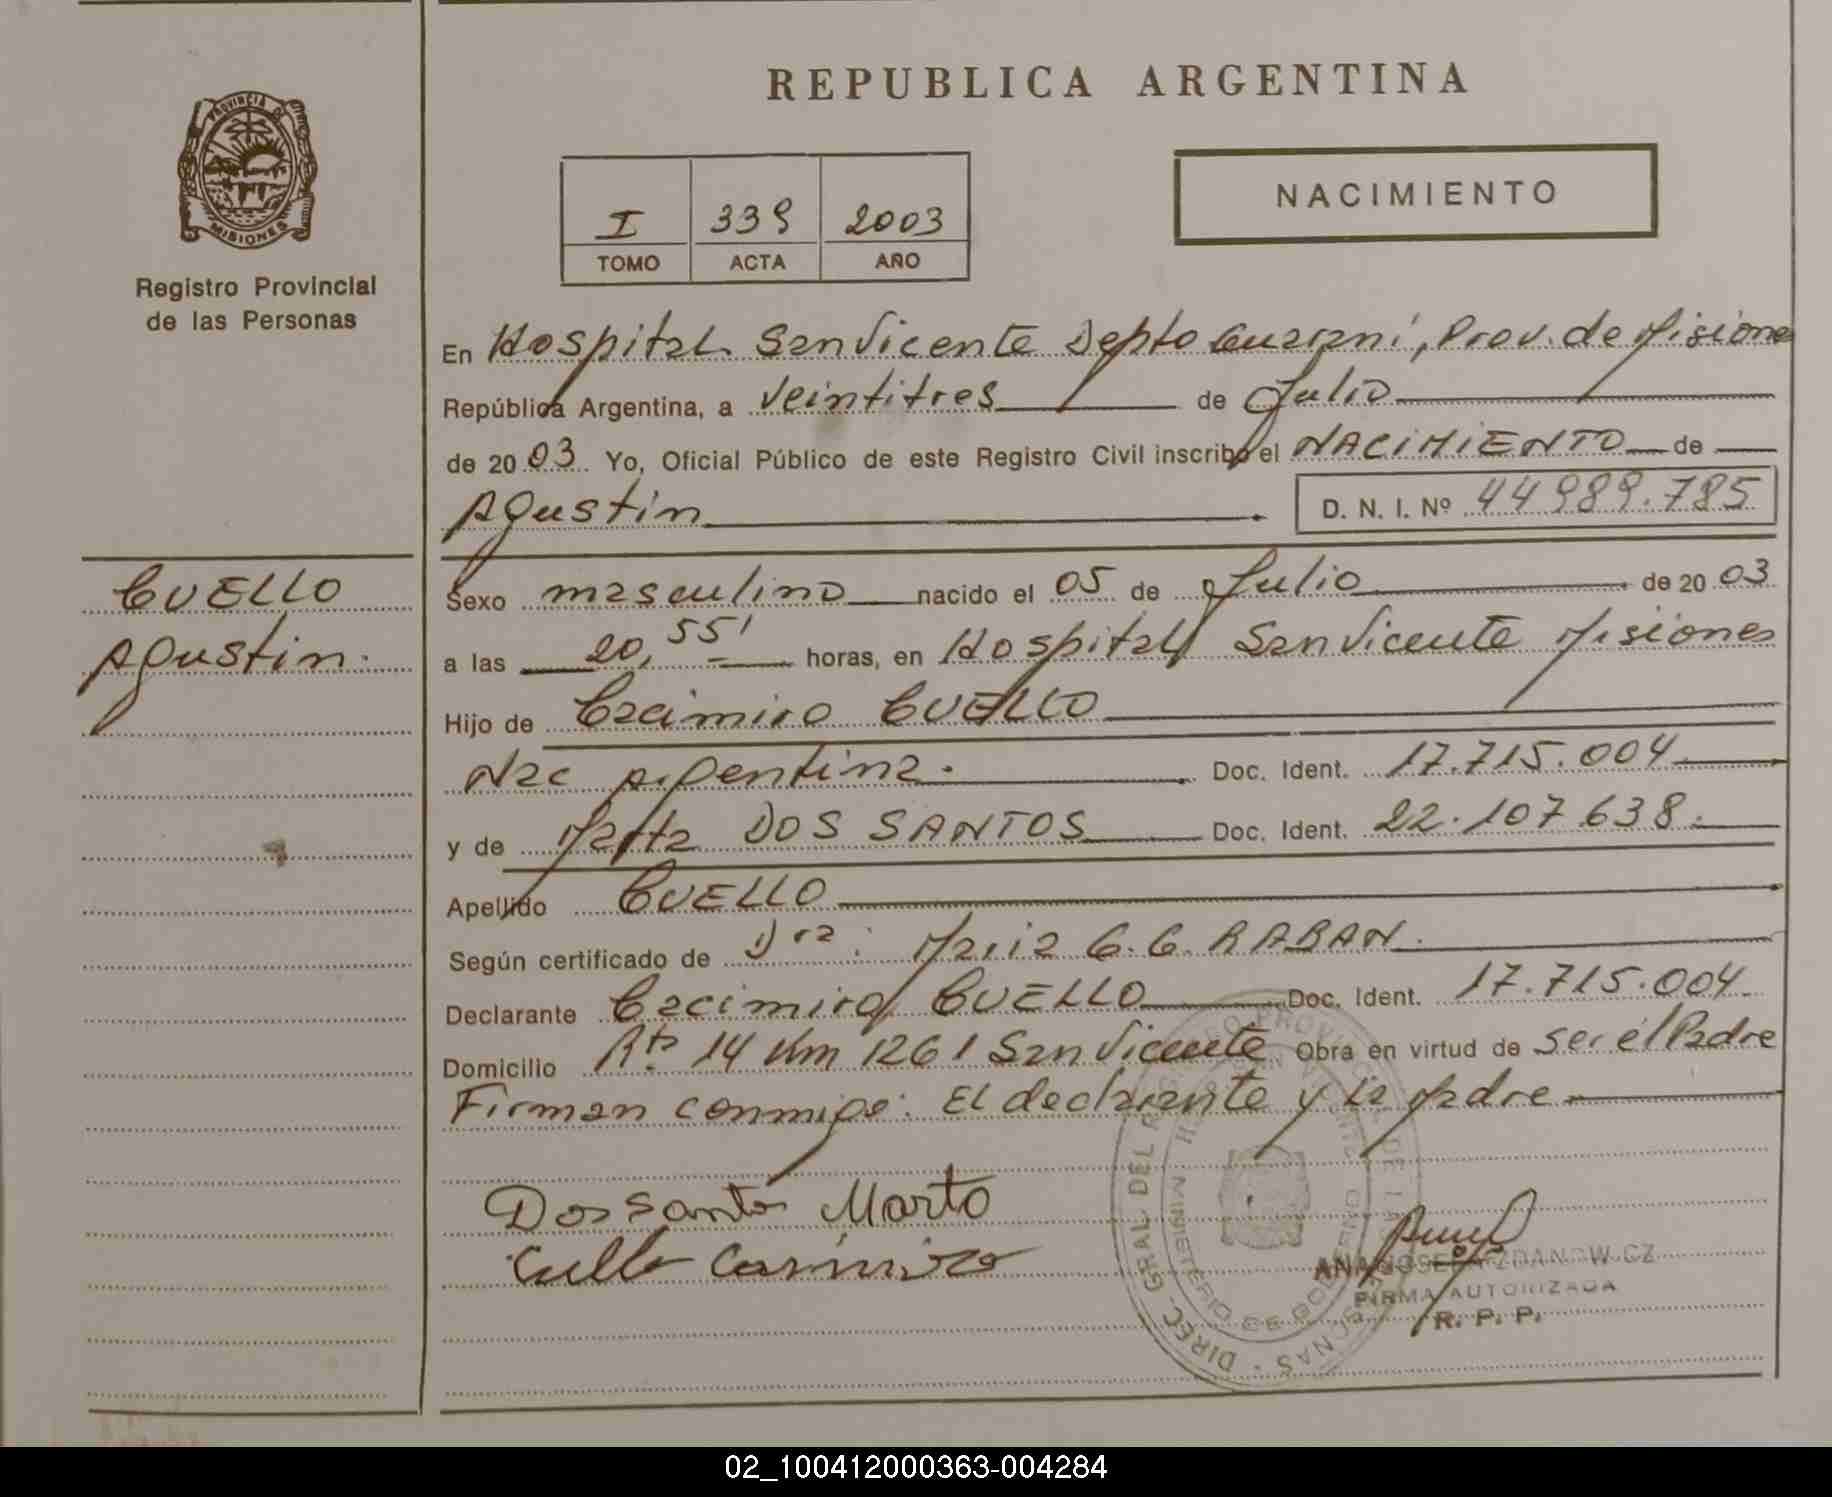 REPUBLICA ARGENTINA
PROVINCIA DE
MISIONES
Registro Provincial
de las Personas
I 339 2003
TOMO ACTA AÑO
NACIMIENTO
En Hospital San Vicente Depto Guarani, Prov. de Misiones
República Argentina, a veintitres de Julio
de 2003 Yo, Oficial Público de este Registro Civil inscribo el NACIMIENTO de
Agustin D. N. I. Nº 44989.785
CUELLO
Agustin.
Sexo masculino nacido el 05 de Julio de 2003
a las 20,55' horas, en Hospital San Vicente Misiones
Hijo de Cacimiro CUELLO
Nac Argentina. Doc. Ident. 17.715.004
y de Marta DOS SANTOS Doc. Ident. 22.107638.
Apellido CUELLO
Según certificado de Dra: Maria G. G. RABAN.
Declarante Cacimiro CUELLO Doc. Ident. 17.715.004
Domicilio Rta 14 Km 1261 San Vicente Obra en virtud de ser el Padre
Firman conmigo: El declarante y la Madre
Dos Santos Marta
Cuello Casimiro
DIREC. GRAL. DEL
MINISTERIO DE GOBIERNO
FIRMA AUTORIZADA
R. P. P.
02_100412000363-004284